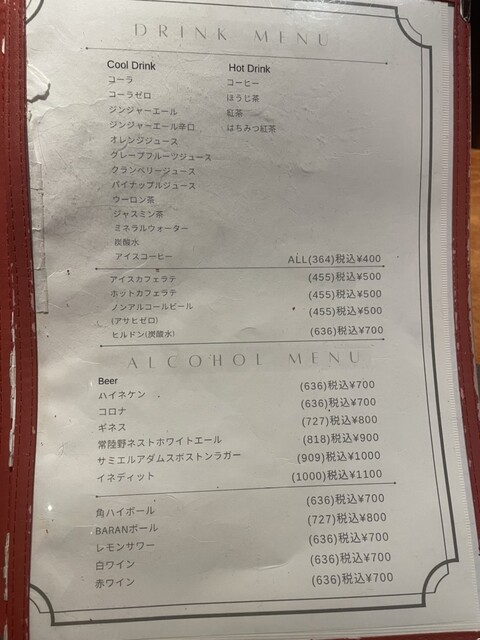 DRINK MENU
Cool Drink Hot Drink
コーラ コーヒー
コーラゼロ ほうじ茶
ジンジャーエール 紅茶
ジンジャーエール辛口 はちみつ紅茶
オレンジジュース
グレープフルーツジュース
クランベリージュース
パイナップルジュース
ウーロン茶
ジャスミン茶
ミネラルウォーター
炭酸水
アイスコーヒー ALL(364)税込¥400
アイスカフェラテ (455)税込¥500
ホットカフェラテ (455)税込¥500
ノンアルコールビール (455)税込¥500
(アサヒゼロ)
ヒルドン(炭酸水) (636)税込¥700
ALCOHOL MENU
Beer
ハイネケン (636)税込¥700
コロナ (636)税込¥700
ギネス (727)税込¥800
常陸野ネストホワイトエール (818)税込¥900
サミエルアダムスボストンラガー (909)税込¥1000
イネディット (1000)税込¥1100
角ハイボール (636)税込¥700
BARANボール (727)税込¥800
レモンサワー (636)税込¥700
白ワイン (636)税込¥700
赤ワイン (636)税込¥700